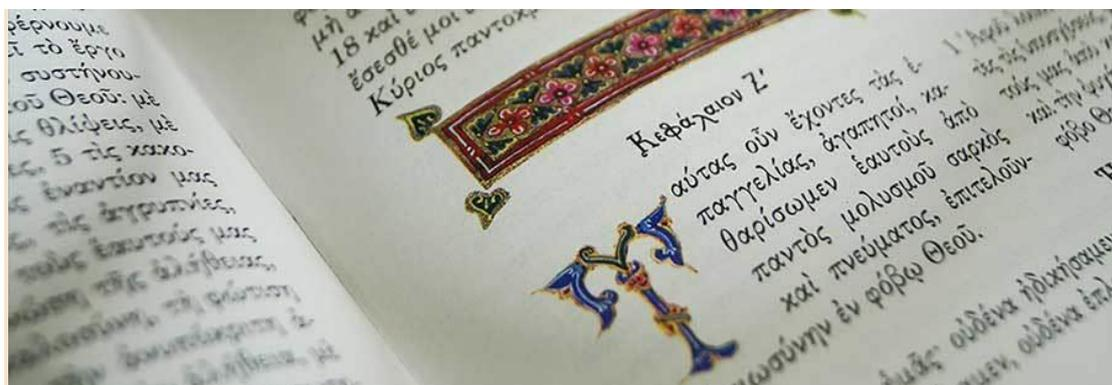 φέρνουμε
τὸ ἔργο
συστήνου-
τοῦ Θεοῦ: μὲ
θλίψεις, μὲ
5 τὶς κακο-
ἐναντίον μας
τὶς ἀγρυπνίες,
τοὺς ἑαυτούς μας
τῆς ἀλήθειας,
18 καὶ
ἔσεσθέ μοι
Κύριος παντοκρ
Κεφάλαιον Ζ'
Ταύτας οὖν ἔχοντες τὰς ἐ-
παγγελίας, ἀγαπητοί, κα-
θαρίσωμεν ἑαυτοὺς ἀπὸ
παντὸς μολυσμοῦ σαρκὸς
καὶ πνεύματος, ἐπιτελοῦν-
ιωσύνην ἐν φόβῳ Θεοῦ.
οὐδένα ἠδικήσαμεν
οὐδένα ἐπλ
τοὺς μας ἀπὸ
καὶ τὴν
φόβο